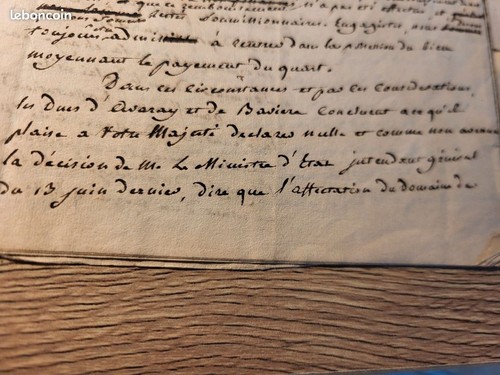 leboncoin
et que ce remboursement n'a pas été effectué et
Soumissionnaires Engagistes, nous
toujours à rentrer dans la possession du bien
moyennant le payement du quart.
Dans ces Circonstances et par ces Considérations,
les Ducs d'Avaray et de Baviere Concluent à ce qu'il
plaise a Votre Majesté declarer nulle et comme non avenue
la décision de M. Le Ministre d'Etat intendant général
du 13 juin dernier, dire que l'affectation du domaine de